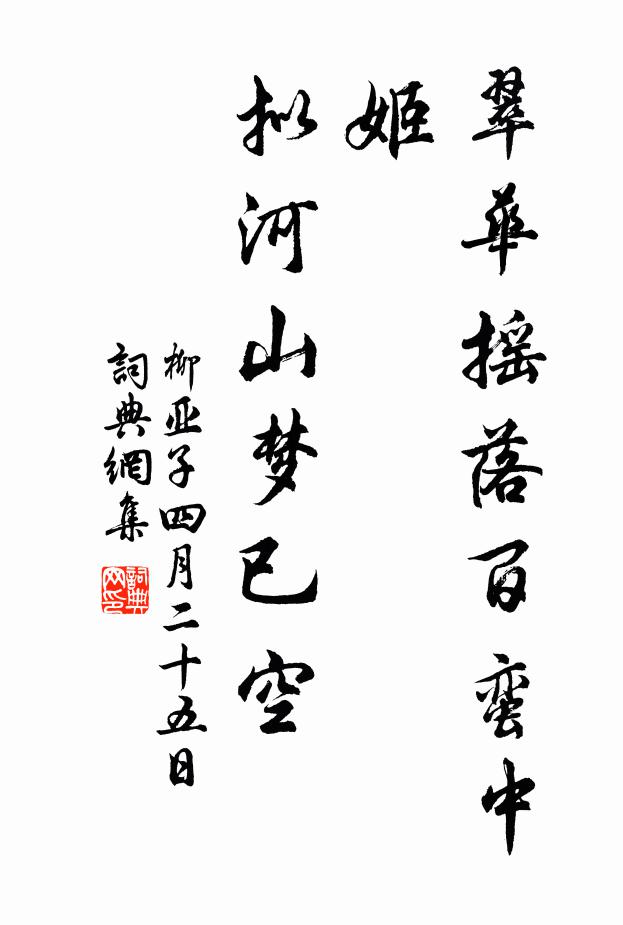 翠华摇落百蛮中
姬
拟河山梦已空
柳亚子四月二十五日
詞典網集
詞典
网印